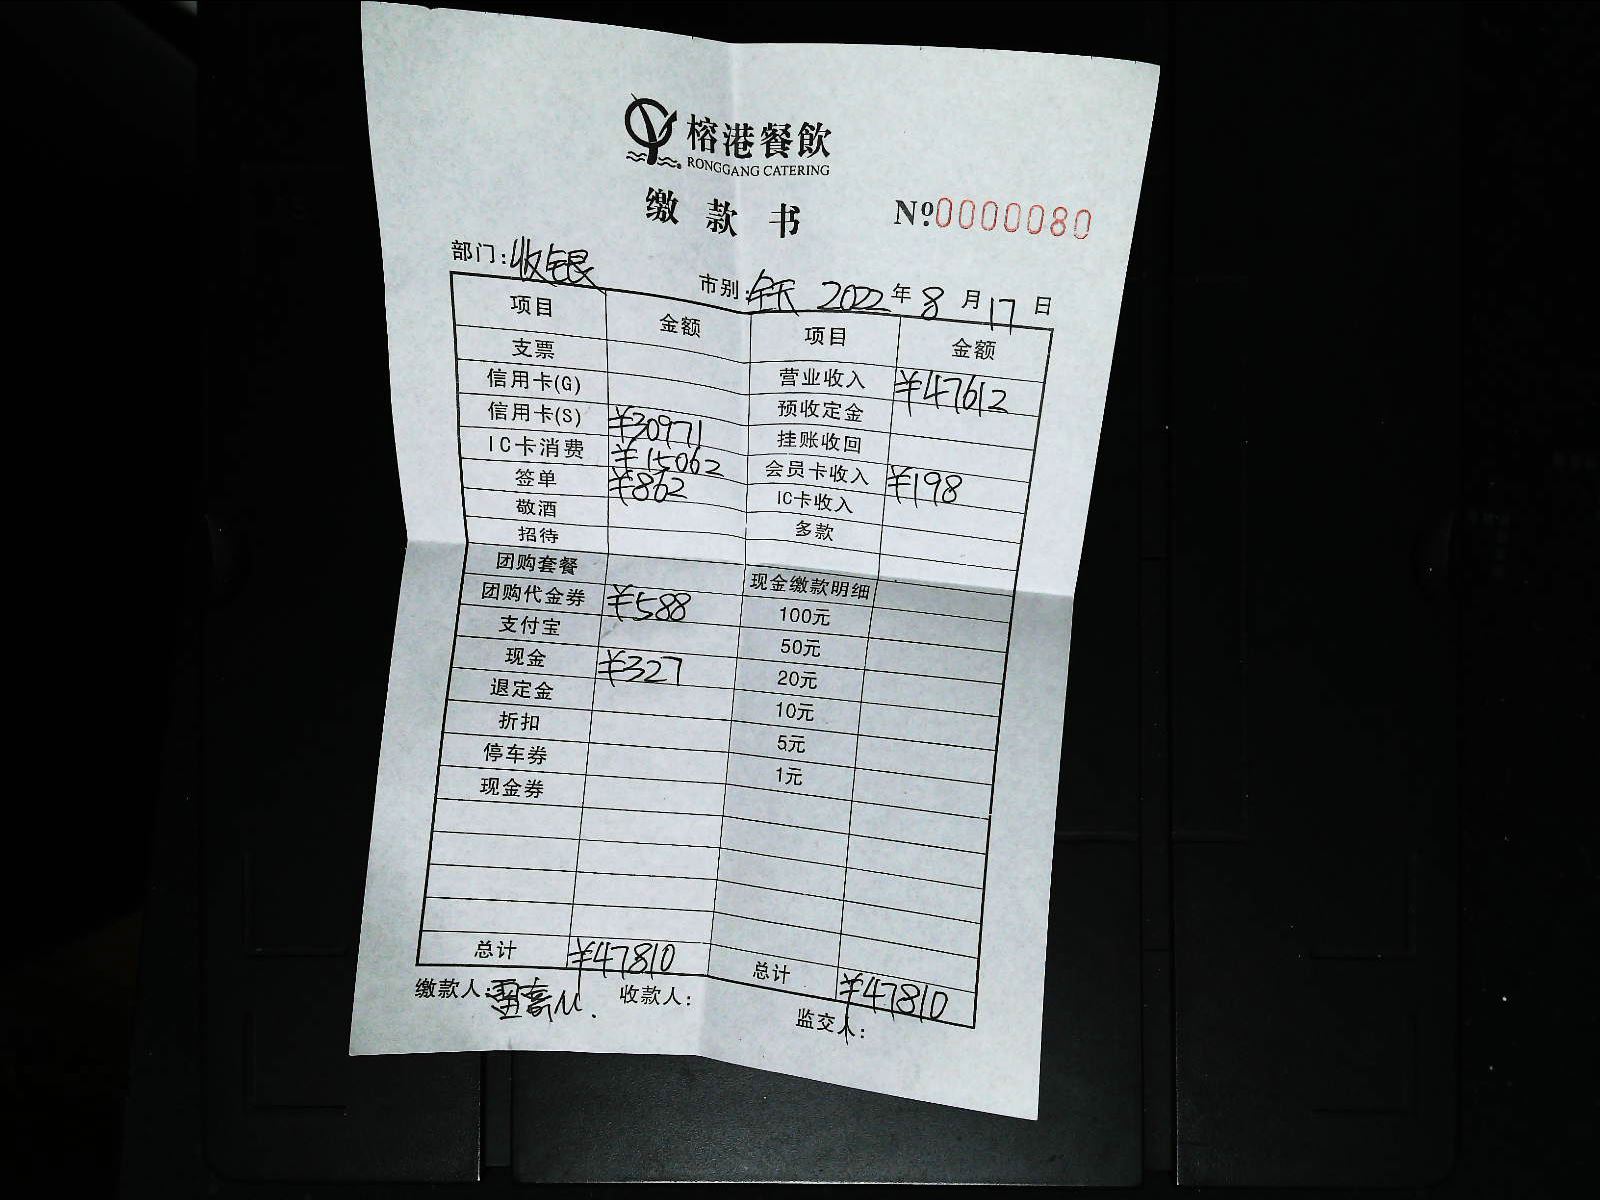 榕港餐飲
RONGGANG CATERING
缴款书
Nº:0000080
部门:收银 市别:全天 2022年8月17日
项目 金额 项目 金额
支票 营业收入 ¥47612
信用卡(G) 预收定金
信用卡(S) ¥30971 挂账收回
IC卡消费 ¥15062 会员卡收入 ¥198
签单 ¥862 IC卡收入
敬酒 多款
招待
团购套餐 现金缴款明细
团购代金券 ¥588 100元
支付宝 50元
现金 ¥327 20元
退定金 10元
折扣 5元
停车券 1元
现金券
总计 ¥47810 总计 ¥47810
缴款人: 收款人: 监交人: